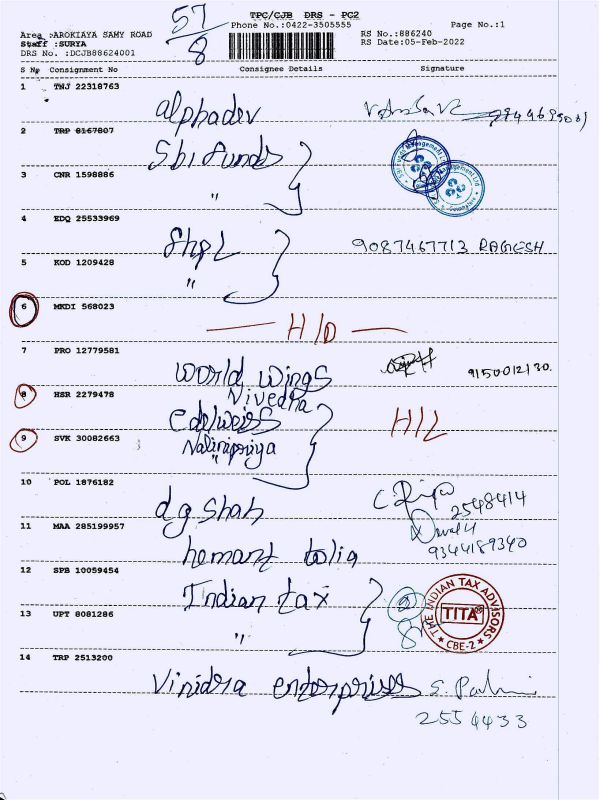 57/8
TPC/CJB DRS - PC2
Phone No.:0422-3505555
Page No.:1
Area :AROKIAYA SAMY ROAD
Staff :SURYA
DRS No. :DCJB88624001
RS No.:886240
RS Date:05-Feb-2022
S No Consignment No Consignee Details Signature
1 TNJ 22318763
alphadev
2 TRP 8167807
Sbi funds
3 CNR 1598886
"
4 EDQ 25533969
Shpl 9087467713 RAGESH
5 KOD 1209428
"
6 MKDI 568023
H/D
7 PRO 12779581
world wings 9150012130.
Nivedha
8 HSR 2279478
edelweiss H/L
Nalinipriya
9 SVK 30082663
"
10 POL 1876182
dg shah 2548414
11 MAA 285199957
hemant tolia 9344189340
12 SPB 10059454
Indian tax
THE INDIAN TAX ADVISORS
TITA
CBE-2
13 UPT 8081286
"
14 TRP 2513200
Vinidra enterprises
2554433